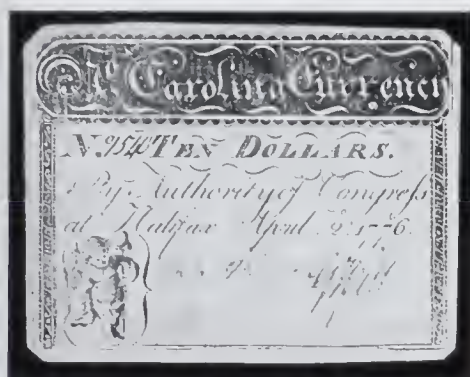 No. Carolina Currency
N. 9540 TEN DOLLARS.
By Authority of Congress
at Halifax April 2, 1776.